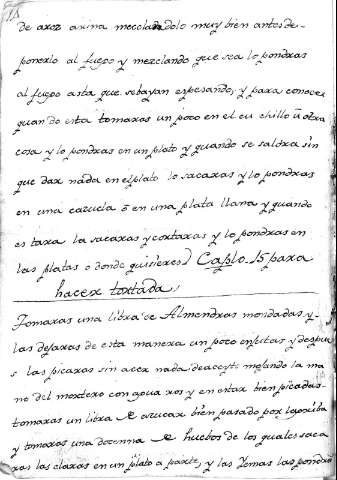 de aroz arina mecolandolo muy bien antes de-
ponerlo al fuego y mezclando que sea lo pondras
al fuego asta que sebayan espesando, y para conocer
quan de esta tomaras un poco en el cu chillo ũ otra
cosa y lo pondras en un plato y quando se saldra sin
que dar nada en el plato lo sacaras y lo pondras
en una cazuela õ en una plata llana y quando
es tara la sacaras y cortaras y lo pondras en
las platas o donde quisieres) Caplo. 15 para
hacer tortada,
Tomaras una libra de Almendras mondadas y-
las dejaras de esta manera un poco enjutas y despues
las picaras sin acer nada deaceyte mojando la ma
no del mortero con agua ros y en estar bien picadas-
tomaras un libra de azucar bien pasado por
y tomaras una docenna de huebos de los quales saca
ras las claras en un plato a parte, y las yemas las pondras